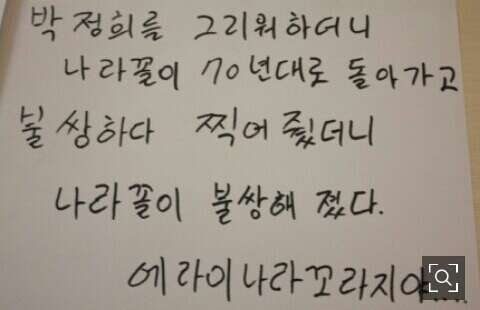 박정희를 그리워하더니
나라꼴이 70년대로 돌아가고
불쌍하다 찍어 줬더니
나라꼴이 불쌍해 졌다.
에라이나라꼬라지야....